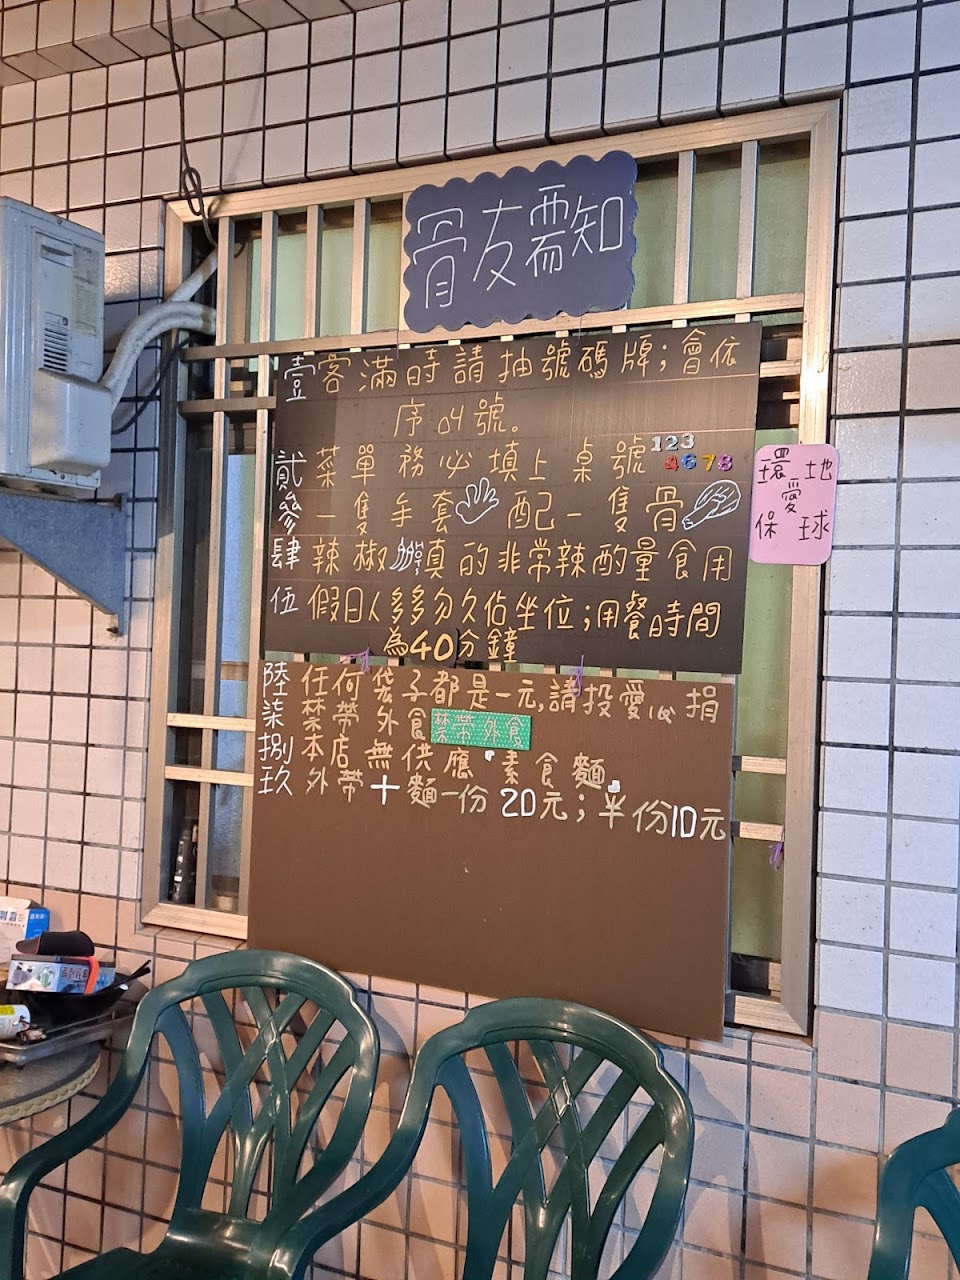 骨友需知
壹 客滿時請抽號碼牌；會依
序叫號。
貳 菜單務必填上桌號 123
4678
參 一隻手套配一隻骨
肆 辣椒真的非常辣酌量食用
伍 假日人多多勿久佔坐位；用餐時間
為40分鐘
陸 任何袋子都是一元，請投愛心捐
柒 禁帶外食 禁帶外食
捌 本店無供應"素食麵"
玖 外帶＋麵一份20元；半份10元
環地
愛
保球